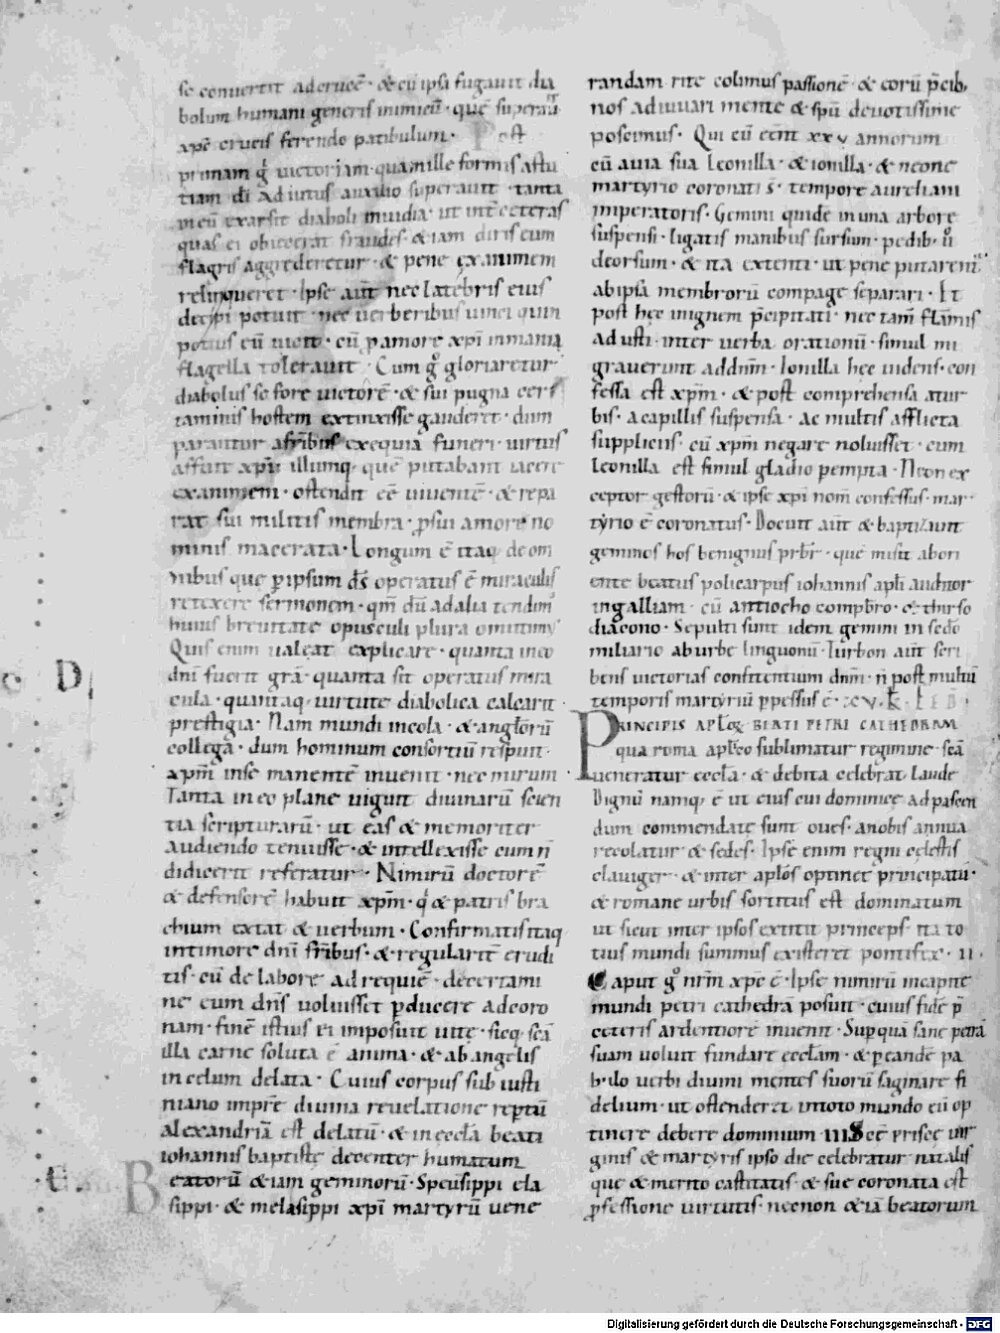 se conuertit ad crucē· & cū ipsa fugauit dia
bolum humani generis inimicū· quē superauit
xp̄c crucis ferendo patibulum· Post
primam gͦ uictoriam· quam ille formis astu
tiam di adiutus auxilio superauit· tanta
in eū exarsit diaboli inuidia· ut int̄ ceteras
quas ei obiecerat fraudes· & iam diris eum
flagris aggrederetur· & pene exanimem
relinqueret· Ipse aut̄ nec latebris eius
decipi potuit· nec uerberibus uinci quin
potius eū uicit· cū p amore xp̄i inmania
flagella tolerauit· Cum gͦ gloriaretur
diabolus se fore uictorē· & sui pugna cer
taminis hostem extinxisse gauderet· dum
parantur a fr̄ibus exequiae funeri· uirtus
affuit xp̄i· illumq· quē putabant iacere
exanimem· ostendit eē uiuentē· & repa
rat sui militis membra· p sui amore no
minis macerata· Longum ē itaq de om
nibus que p ipsum d̄s operatus ē miraculis
retexere sermonem· qm̄ dū ad alia tendim'
huius breuitate opusculi plura omittim'
Quis enim ualeat explicare· quanta in eo
dn̄i fuerit grā· quanta sit operatus mira
cula· quantaq· uirtute diabolica calcarit
prestigia· Nam mundi incola· & angl̄orū
collega· dum hominum consortiū respuit·
xp̄m in se manentē inuenit· nec mirum
Tanta in eo plane uiguit diuinarū scien
tia scripturarū· ut eas & memoriter
audiendo tenuisse· & intellexisse cum n̄
didicerit referatur· Nimirū doctorē
& defensorē habuit xp̄m· q̇ & patris bra
chium extat & uerbum· Confirmatis itaq
intimore dn̄i fr̄ibus· & regularit̄ erudi
tis· cū de labore ad requiē· de certami
ne eum dn̄s uoluisset pducere ad coro
nam· finē istius ei imposuit uitę· sicq· scā
illa carne soluta ē anima· & ab angelis
in celum delata· Cuius corpus sub iusti
niano impr̄e diuina reuelatione reptū
alexandriā est delatū· & in eccl̄a beati
iohannis baptistę decenter humatum
Beatorū &iam geminorū· Speusippi ela
sippi· & melasippi xp̄i martyrū uene
randam rite colimus passionē· & eorū p̄cib;
nos adiuuari mente & sp̄u deuotissime
poscimus· Qui cū eēnt xxv annorum
cū auia sua Leonilla· & ionilla· & neone
martyrio coronati s̄· tempore aureliani
imperatoris· Gemini quidē in una arbore
suspensi· ligatis manibus sursum· pedib; ů
deorsum· & ita extenti· ut pene putarent
ab ipsa membrorū compage separari· Et
post hęc in ignem p̄cipitati· nec tam̄ flāmis
adusti· inter uerba orationū· simul mi
grauerunt ad dn̄m· Ionilla hęc uidens· con
fessa est xp̄m· & post comprehensa a tur
bis· a capillis suspensa· ac multis afflicta
suppliciis· cū xp̄m negare noluisset· cum
leonilla est simul gladio pempta· Neon ex
ceptor gestorū· & ipse xp̄i nom̄ confessus· mar
tyrio ē coronatus· Docuit aut̄ & baptizauit
geminos hos benignus prb̄r· quē misit ab ori
ente beatus policarpus iohannis apl̄i auditor
in galliam· cū antiocho compbr̄o· & thirso
diacono· Sepulti sunt idem gemini in scd̄o
miliario ab urbe linguonū· Turbon aut̄ scri
bens uictorias confitentum dn̄m· n̄ post multū
temporis martyriū ppessus ē·
PRINCIPIS APL̄OR BEATI PETRI CATHEDRAM
qua roma apl̄co sublimatur regimine· scā
ueneratur eccl̄a· & debita celebrat laude
Dignū namq; ē ut eius cui dominicę ad pascen
dum commendatę sunt oues· a nobis annua
recolatur & sedes· Ipsē enim regni celestis
clauiger· & inter apl̄os optinet principatū·
& romanę urbis sortitus est dominatum
ut sicut inter ipsos extitit princeps· ita to
tius mundi summus existeret pontifex· II·
Caput gͦ nr̄m xp̄c ē· Ipse nimirū in capite
mundi petri cathedrā posuit· cuius fidē p̄
ceteris ardentiorē inuenit· Sup quā sane petrā
suam uoluit fundare eccl̄am· & pcandē pa
bulo uerbi diuini mentes suorū saginare fi
delium· ut ostenderet in toto mundo eū op
tinere debere dominium· III Scē priscę uir
ginis & martyris ipso die celebratur natalis
que & merito castitatis· & suę coronata est
pfessione uirtutis· necnon &iā beatorum
D
t
Digitalisierung gefördert durch die Deutsche Forschungsgemeinschaft - DFG